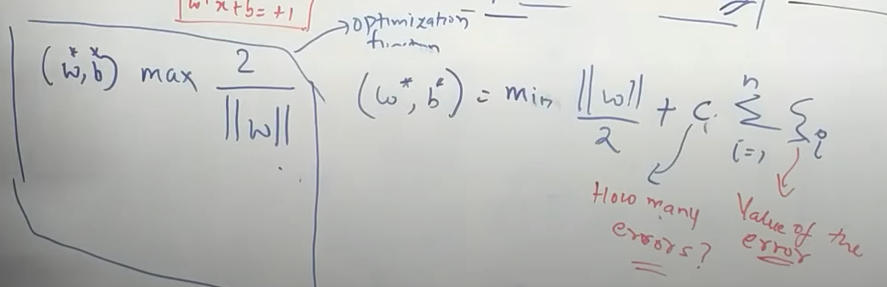 wᵀx+b=+1
optimization
function
(w*, b*) max 2/||w||
(w*, b*) = min ||w||/2 + Cᵢ Σⁿᵢ₌₁ ξᵢ
How many
errors?
Value of the
error